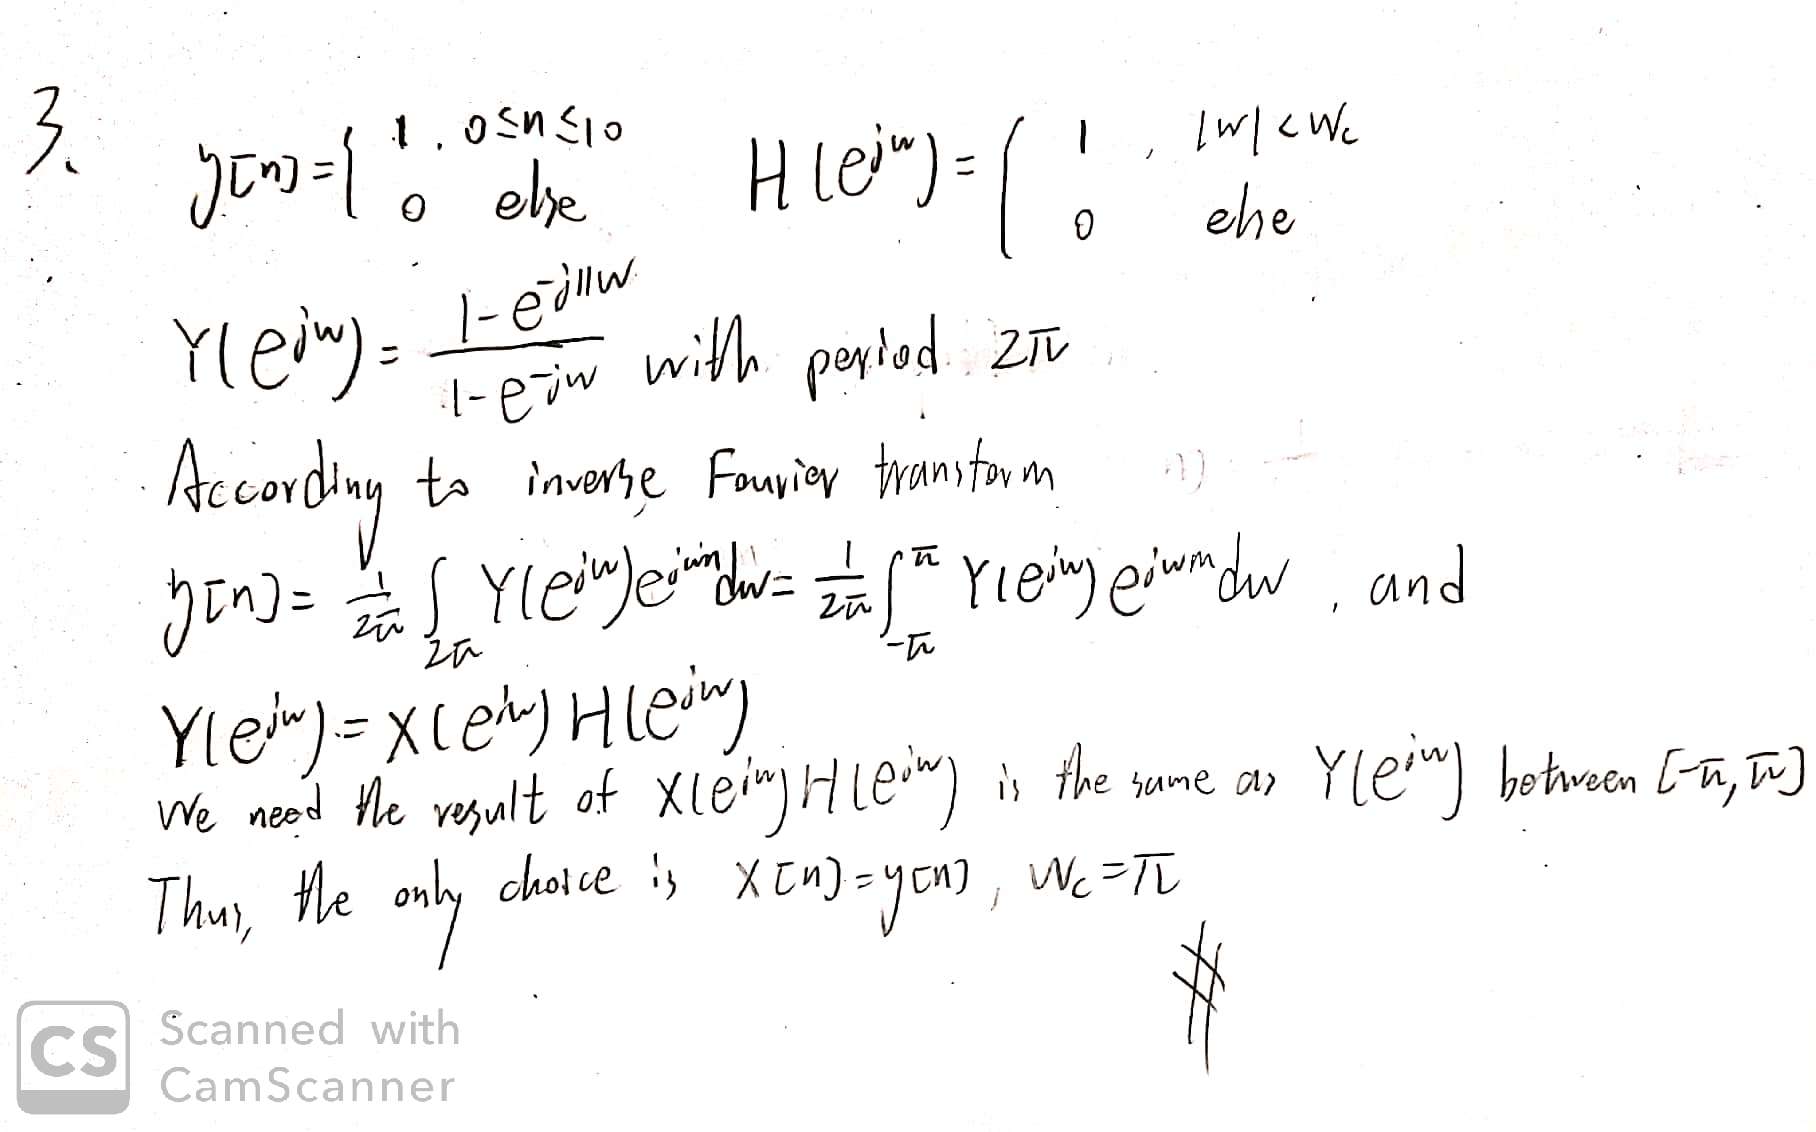 3. y[n] = { 1, 0≤n≤10 H(e^{jw}) = { 1, |w|<Wc
0 else 0 else
Y(e^{jw}) = \frac{1-e^{-j11w}}{1-e^{-jw}} with period 2π
According to inverse Fourier transform
y[n] = \frac{1}{2π} ∫_{2π} Y(e^{jw})e^{jwn}dw = \frac{1}{2π} ∫_{-π}^{π} Y(e^{jw})e^{jwn}dw , and
Y(e^{jw}) = X(e^{jw}) H(e^{jw})
We need the result of X(e^{jw}) H(e^{jw}) is the same as Y(e^{jw}) between [-π, π]
Thus, the only choice is X[n] = y[n], Wc = π
#
CS Scanned with
CamScanner